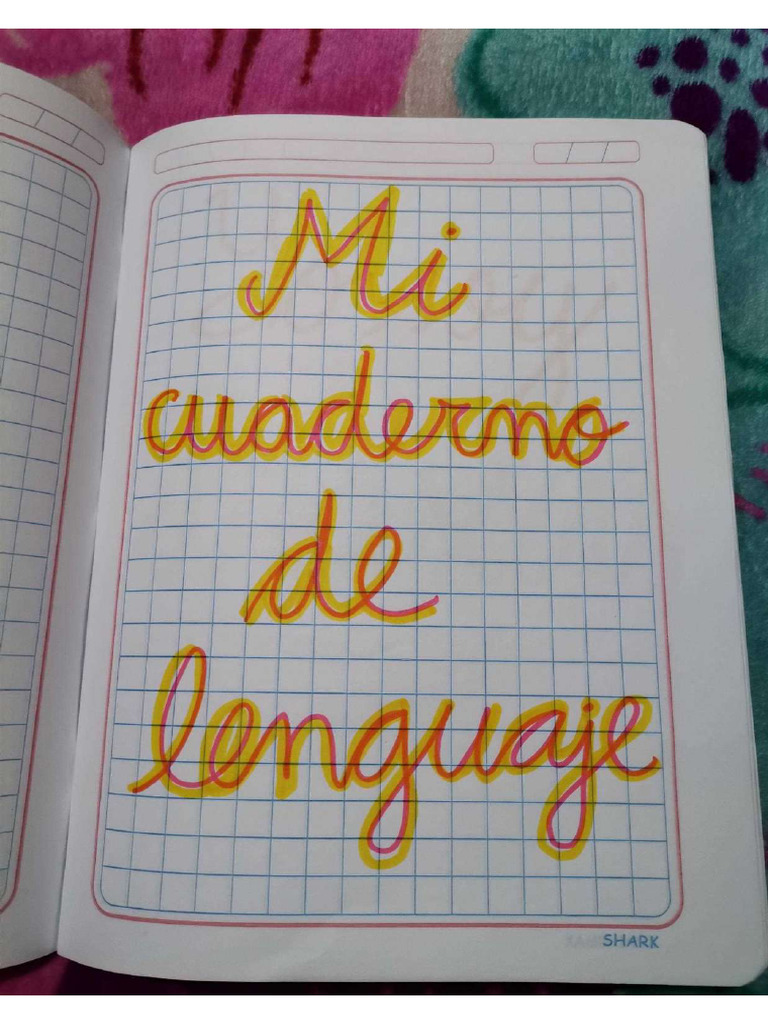 Mi
cuaderno
de
lenguaje
SHARK